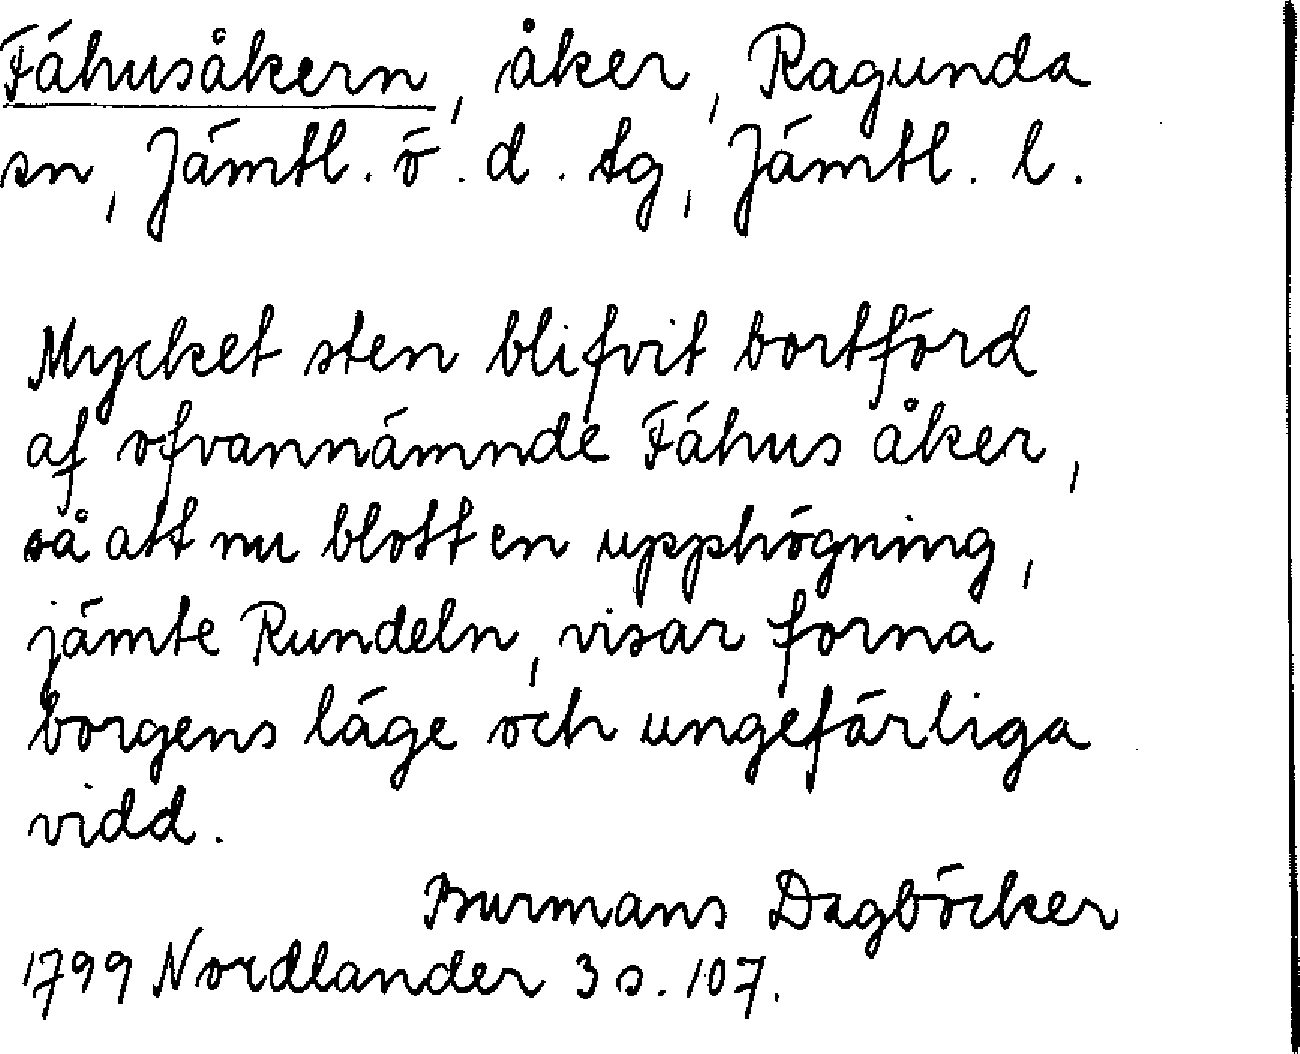 Fähusåkern, åker, Ragunda
sn, Jämtl. ö. d. tg, Jämtl. l.
Mycket sten blifvit bortförd
af ofvannämnde Fähus åker,
så att nu blott en upphögning,
jämte Rundeln, visar forna
borgens läge och ungefärliga
vidd.
Burmans Dagböcker
1799 Nordlander 3 s. 107.